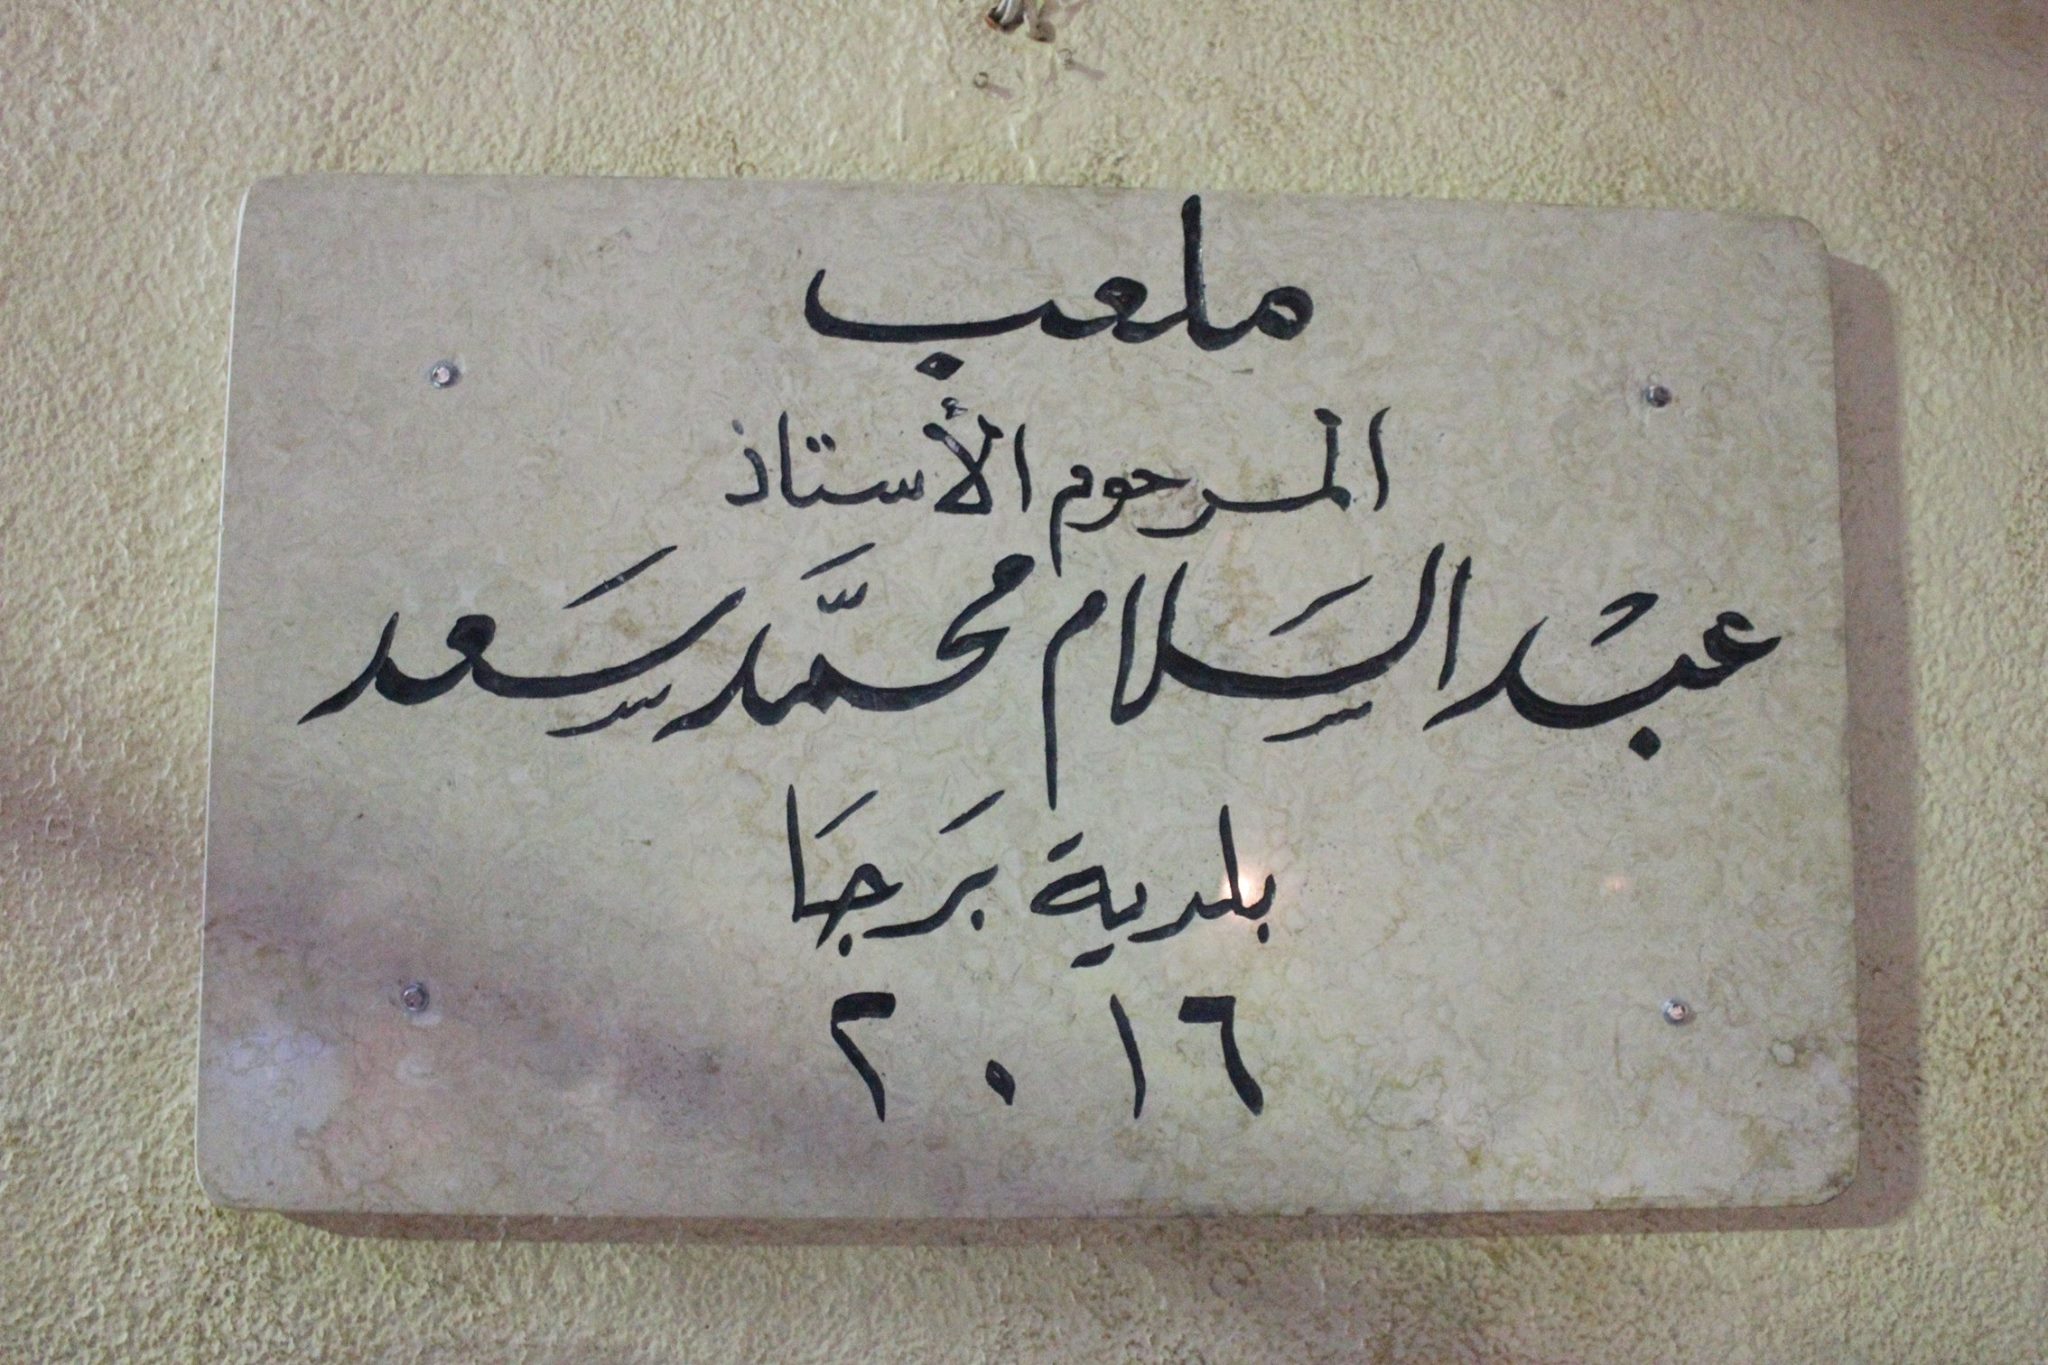 ملعب
المرحوم الأستاذ
عبْد السَلام محمَّد سَعد
بلدية بَرجَا
٢٠١٦